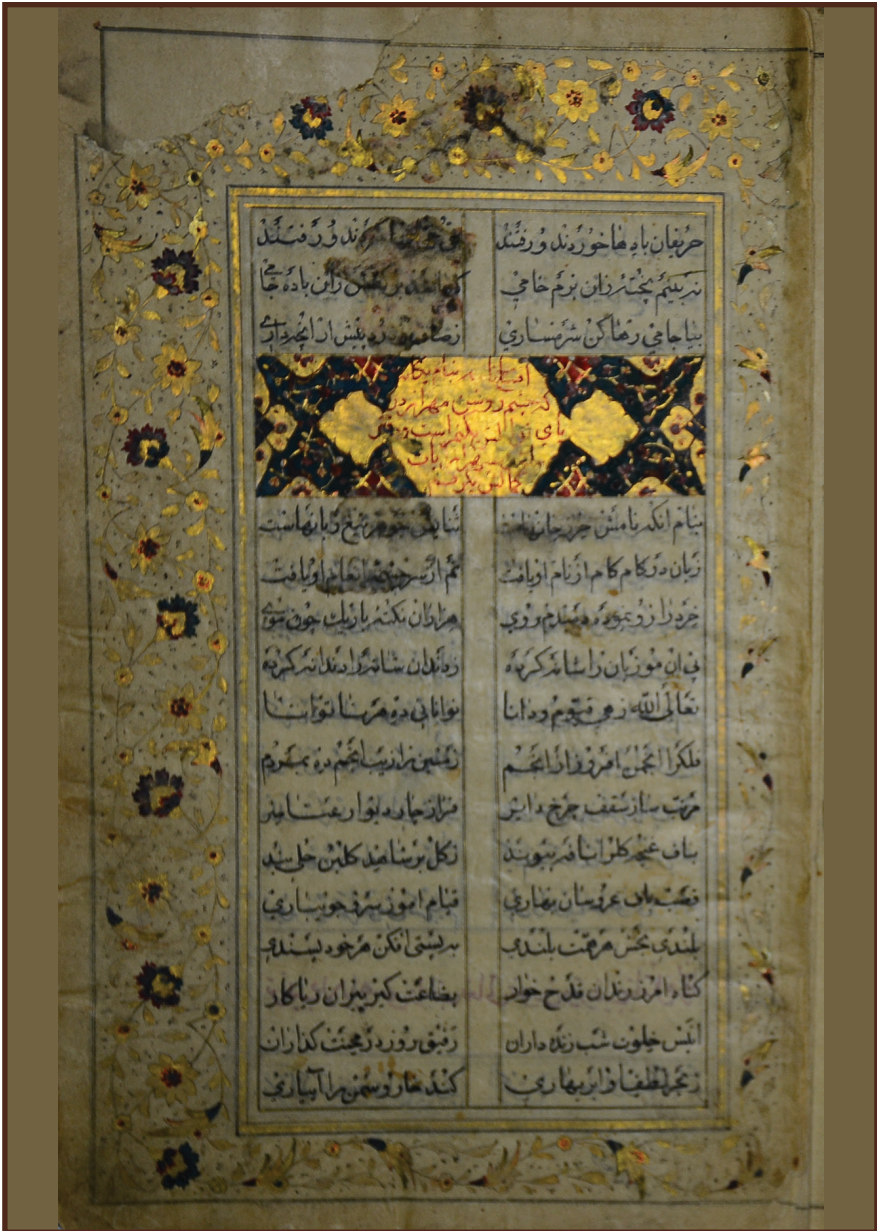 حریفان باده‌ها خوردند و رفتند ... ند و رفتند
نه بینم پخته زان بزم خامی ... زان باده جامی
بیا جامی رها کن شرمساری ز صاف و درد پیش آر آنچه داری
بنام آنکه نامش حرز جانهاست ثنایش جوهر تیغ زبانهاست
زبان در کام کام از نام او یافت نم از سرچشمه انعام او یافت
خرد را زو نموده دمبدم روی هزاران نکته باریک چون موی
پی آن مو زبان را شانه کرده ز دندان شانه را دندانه کرده
تعالی الله زهی قیوم و دانا توانائی ده هر ناتوانا
فلک را انجمن افروز از انجم زمین را زیب انجم ده بمردم
مرتب ساز سقف چرخ دایر فراز چار دیوار عناصر
بناف غنچه گل را نافه پیوند ز گل بر شاهد گلبن حلی بند
قصب باف عروسان بهاری قیام آموز سرو جویباری
بلندی بخش هر همت بلندی به پستی افکن هر خود پسندی
گناه آمرز رندان قدح خوار بطاعت گیر پیران ریاکار
انیس خلوت شب زنده داران رفیق روز در محنت گذاران
ز بحر لطف او ابر بهاری کند خار و سمن را آبیاری